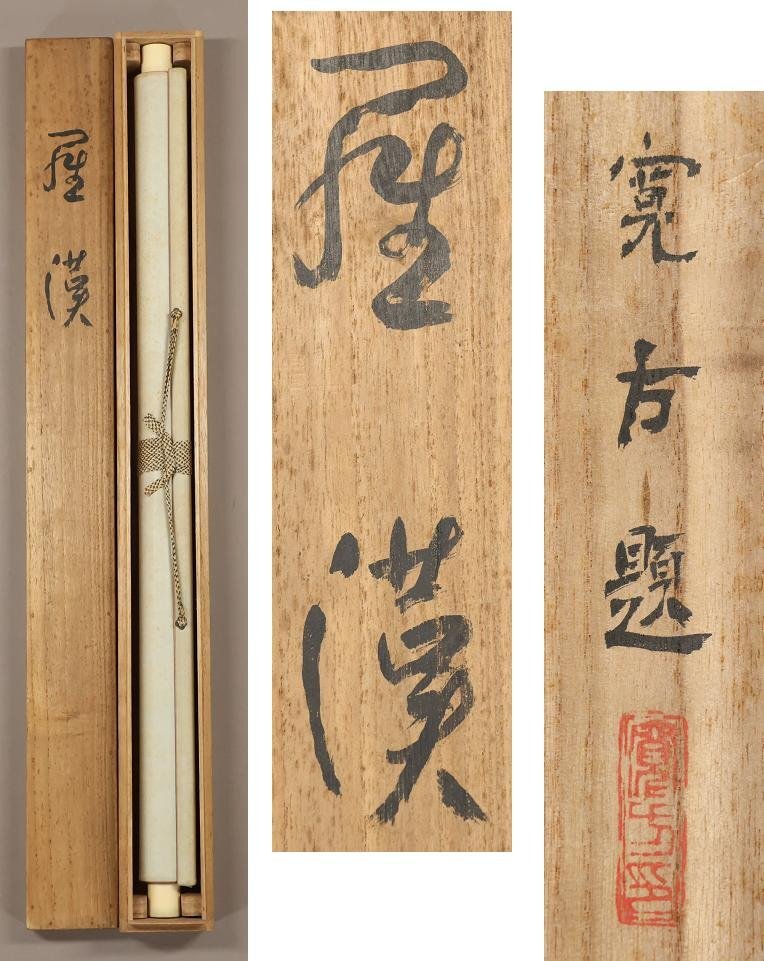 羅漢
羅漢
寛方題